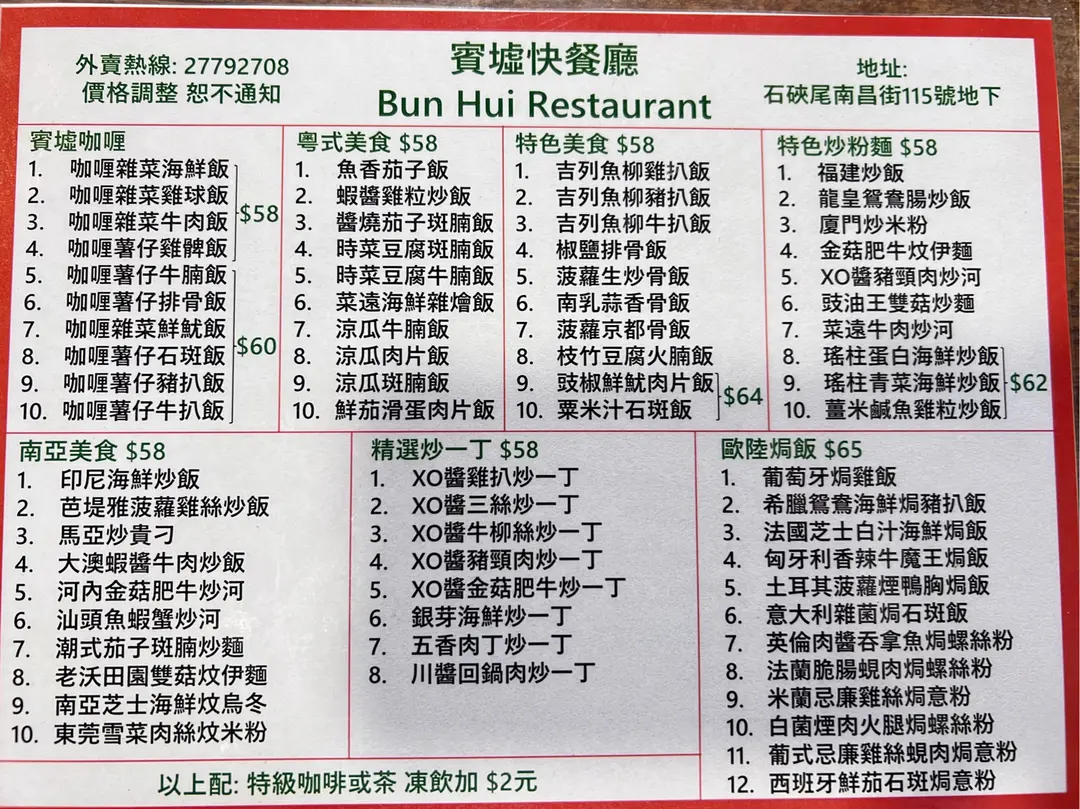 外賣熱線: 27792708
價格調整 恕不通知
賓墟快餐廳
Bun Hui Restaurant
地址:
石硤尾南昌街115號地下
賓墟咖喱
1. 咖喱雜菜海鮮飯
2. 咖喱雜菜雞球飯
3. 咖喱雜菜牛肉飯
4. 咖喱薯仔雞髀飯
$58
5. 咖喱薯仔牛腩飯
6. 咖喱薯仔排骨飯
7. 咖喱雜菜鮮魷飯
8. 咖喱薯仔石斑飯
9. 咖喱薯仔豬扒飯
10. 咖喱薯仔牛扒飯
$60
粵式美食 $58
1. 魚香茄子飯
2. 蝦醬雞粒炒飯
3. 醬燒茄子斑腩飯
4. 時菜豆腐斑腩飯
5. 時菜豆腐牛腩飯
6. 菜遠海鮮雜燴飯
7. 涼瓜牛腩飯
8. 涼瓜肉片飯
9. 涼瓜斑腩飯
10. 鮮茄滑蛋肉片飯
特色美食 $58
1. 吉列魚柳雞扒飯
2. 吉列魚柳豬扒飯
3. 吉列魚柳牛扒飯
4. 椒鹽排骨飯
5. 菠蘿生炒骨飯
6. 南乳蒜香骨飯
7. 菠蘿京都骨飯
8. 枝竹豆腐火腩飯
9. 豉椒鮮魷肉片飯
10. 粟米汁石斑飯
$64
特色炒粉麵 $58
1. 福建炒飯
2. 龍皇鴛鴦腸炒飯
3. 廈門炒米粉
4. 金菇肥牛炆伊麵
5. XO醬豬頸肉炒河
6. 豉油王雙菇炒麵
7. 菜遠牛肉炒河
8. 瑤柱蛋白海鮮炒飯
9. 瑤柱青菜海鮮炒飯
10. 薑米鹹魚雞粒炒飯
$62
南亞美食 $58
1. 印尼海鮮炒飯
2. 芭堤雅菠蘿雞絲炒飯
3. 馬亞炒貴刁
4. 大澳蝦醬牛肉炒飯
5. 河內金菇肥牛炒河
6. 汕頭魚蝦蟹炒河
7. 潮式茄子斑腩炒麵
8. 老沃田園雙菇炆伊麵
9. 南亞芝士海鮮炆烏冬
10. 東莞雪菜肉絲炆米粉
精選炒一丁 $58
1. XO醬雞扒炒一丁
2. XO醬三絲炒一丁
3. XO醬牛柳絲炒一丁
4. XO醬豬頸肉炒一丁
5. XO醬金菇肥牛炒一丁
6. 銀芽海鮮炒一丁
7. 五香肉丁炒一丁
8. 川醬回鍋肉炒一丁
歐陸焗飯 $65
1. 葡萄牙焗雞飯
2. 希臘鴛鴦海鮮焗豬扒飯
3. 法國芝士白汁海鮮焗飯
4. 匈牙利香辣牛魔王焗飯
5. 土耳其菠蘿煙鴨胸焗飯
6. 意大利雜菌焗石斑飯
7. 英倫肉醬吞拿魚焗螺絲粉
8. 法蘭脆腸蜆肉焗螺絲粉
9. 米蘭忌廉雞絲焗意粉
10. 白菌煙肉火腿焗螺絲粉
11. 葡式忌廉雞絲蜆肉焗意粉
12. 西班牙鮮茄石斑焗意粉
以上配: 特級咖啡或茶 凍飲加 $2元